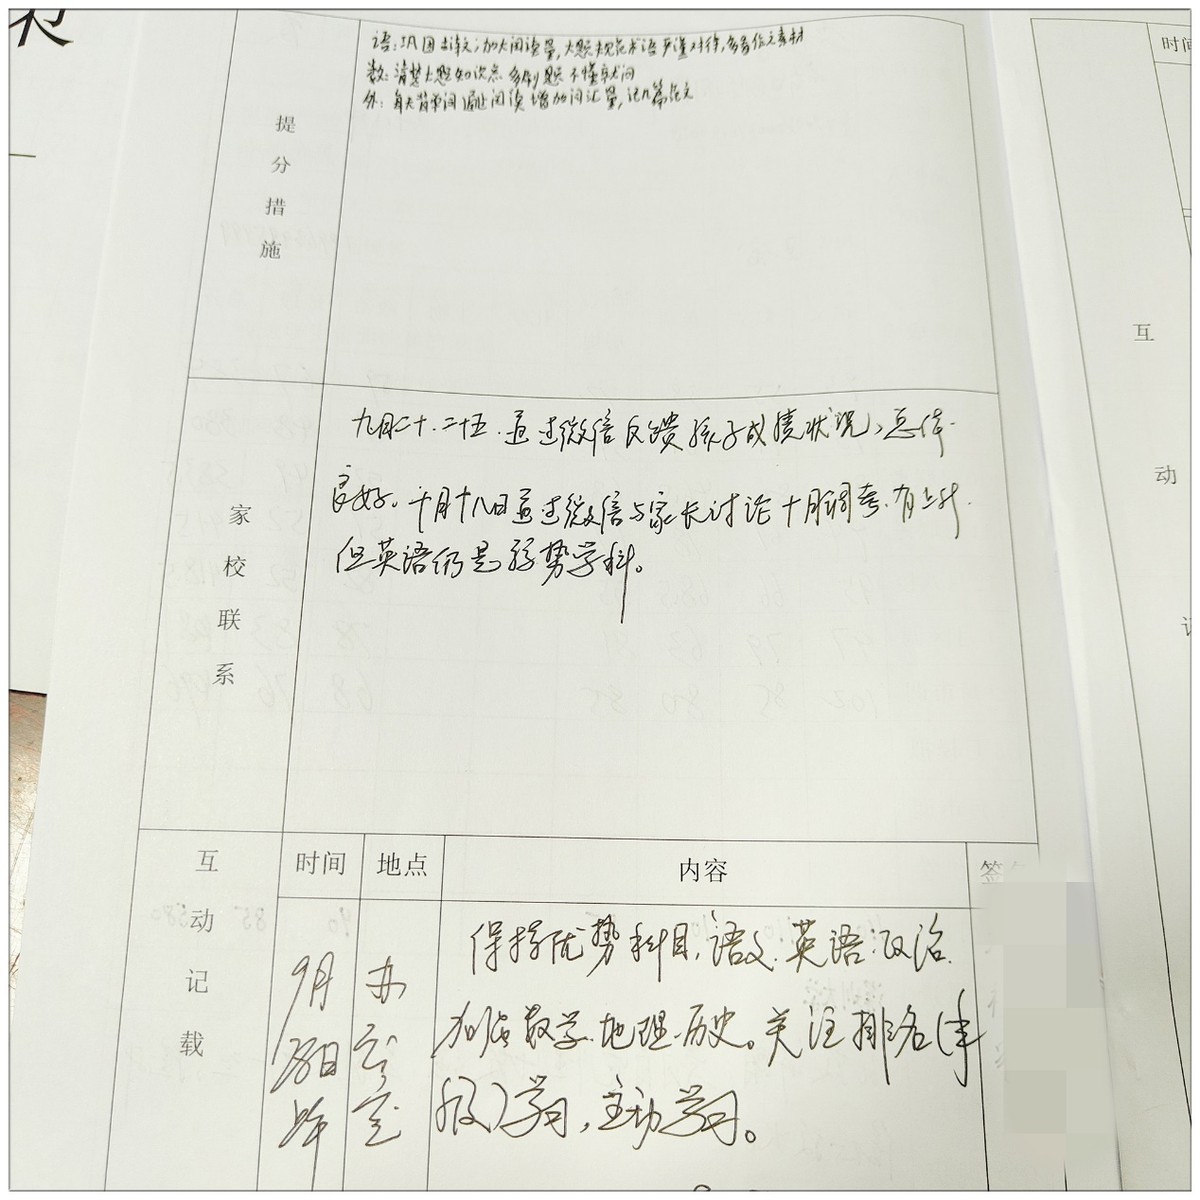 提分措施
语:巩固 加大阅读量,大题规范术语严谨对待,多看作文素材
数:清楚大题知识点 多刷题 不懂就问
外:每天背单词 阅读 增加词汇量,记几篇范文
家校联系
九月二十.二十五.通过微信反馈孩子成绩状况,总体
良好。十月十八日通过微信与家长讨论十月调考.有上升.
但英语仍是弱势学科。
互动记载
时间 地点 内容 签
9月 办
保持优势科目,语文.英语.政治.
加强数学.地理.历史。关注排名(年
级)学习,主动学习。
室
时间
互
动